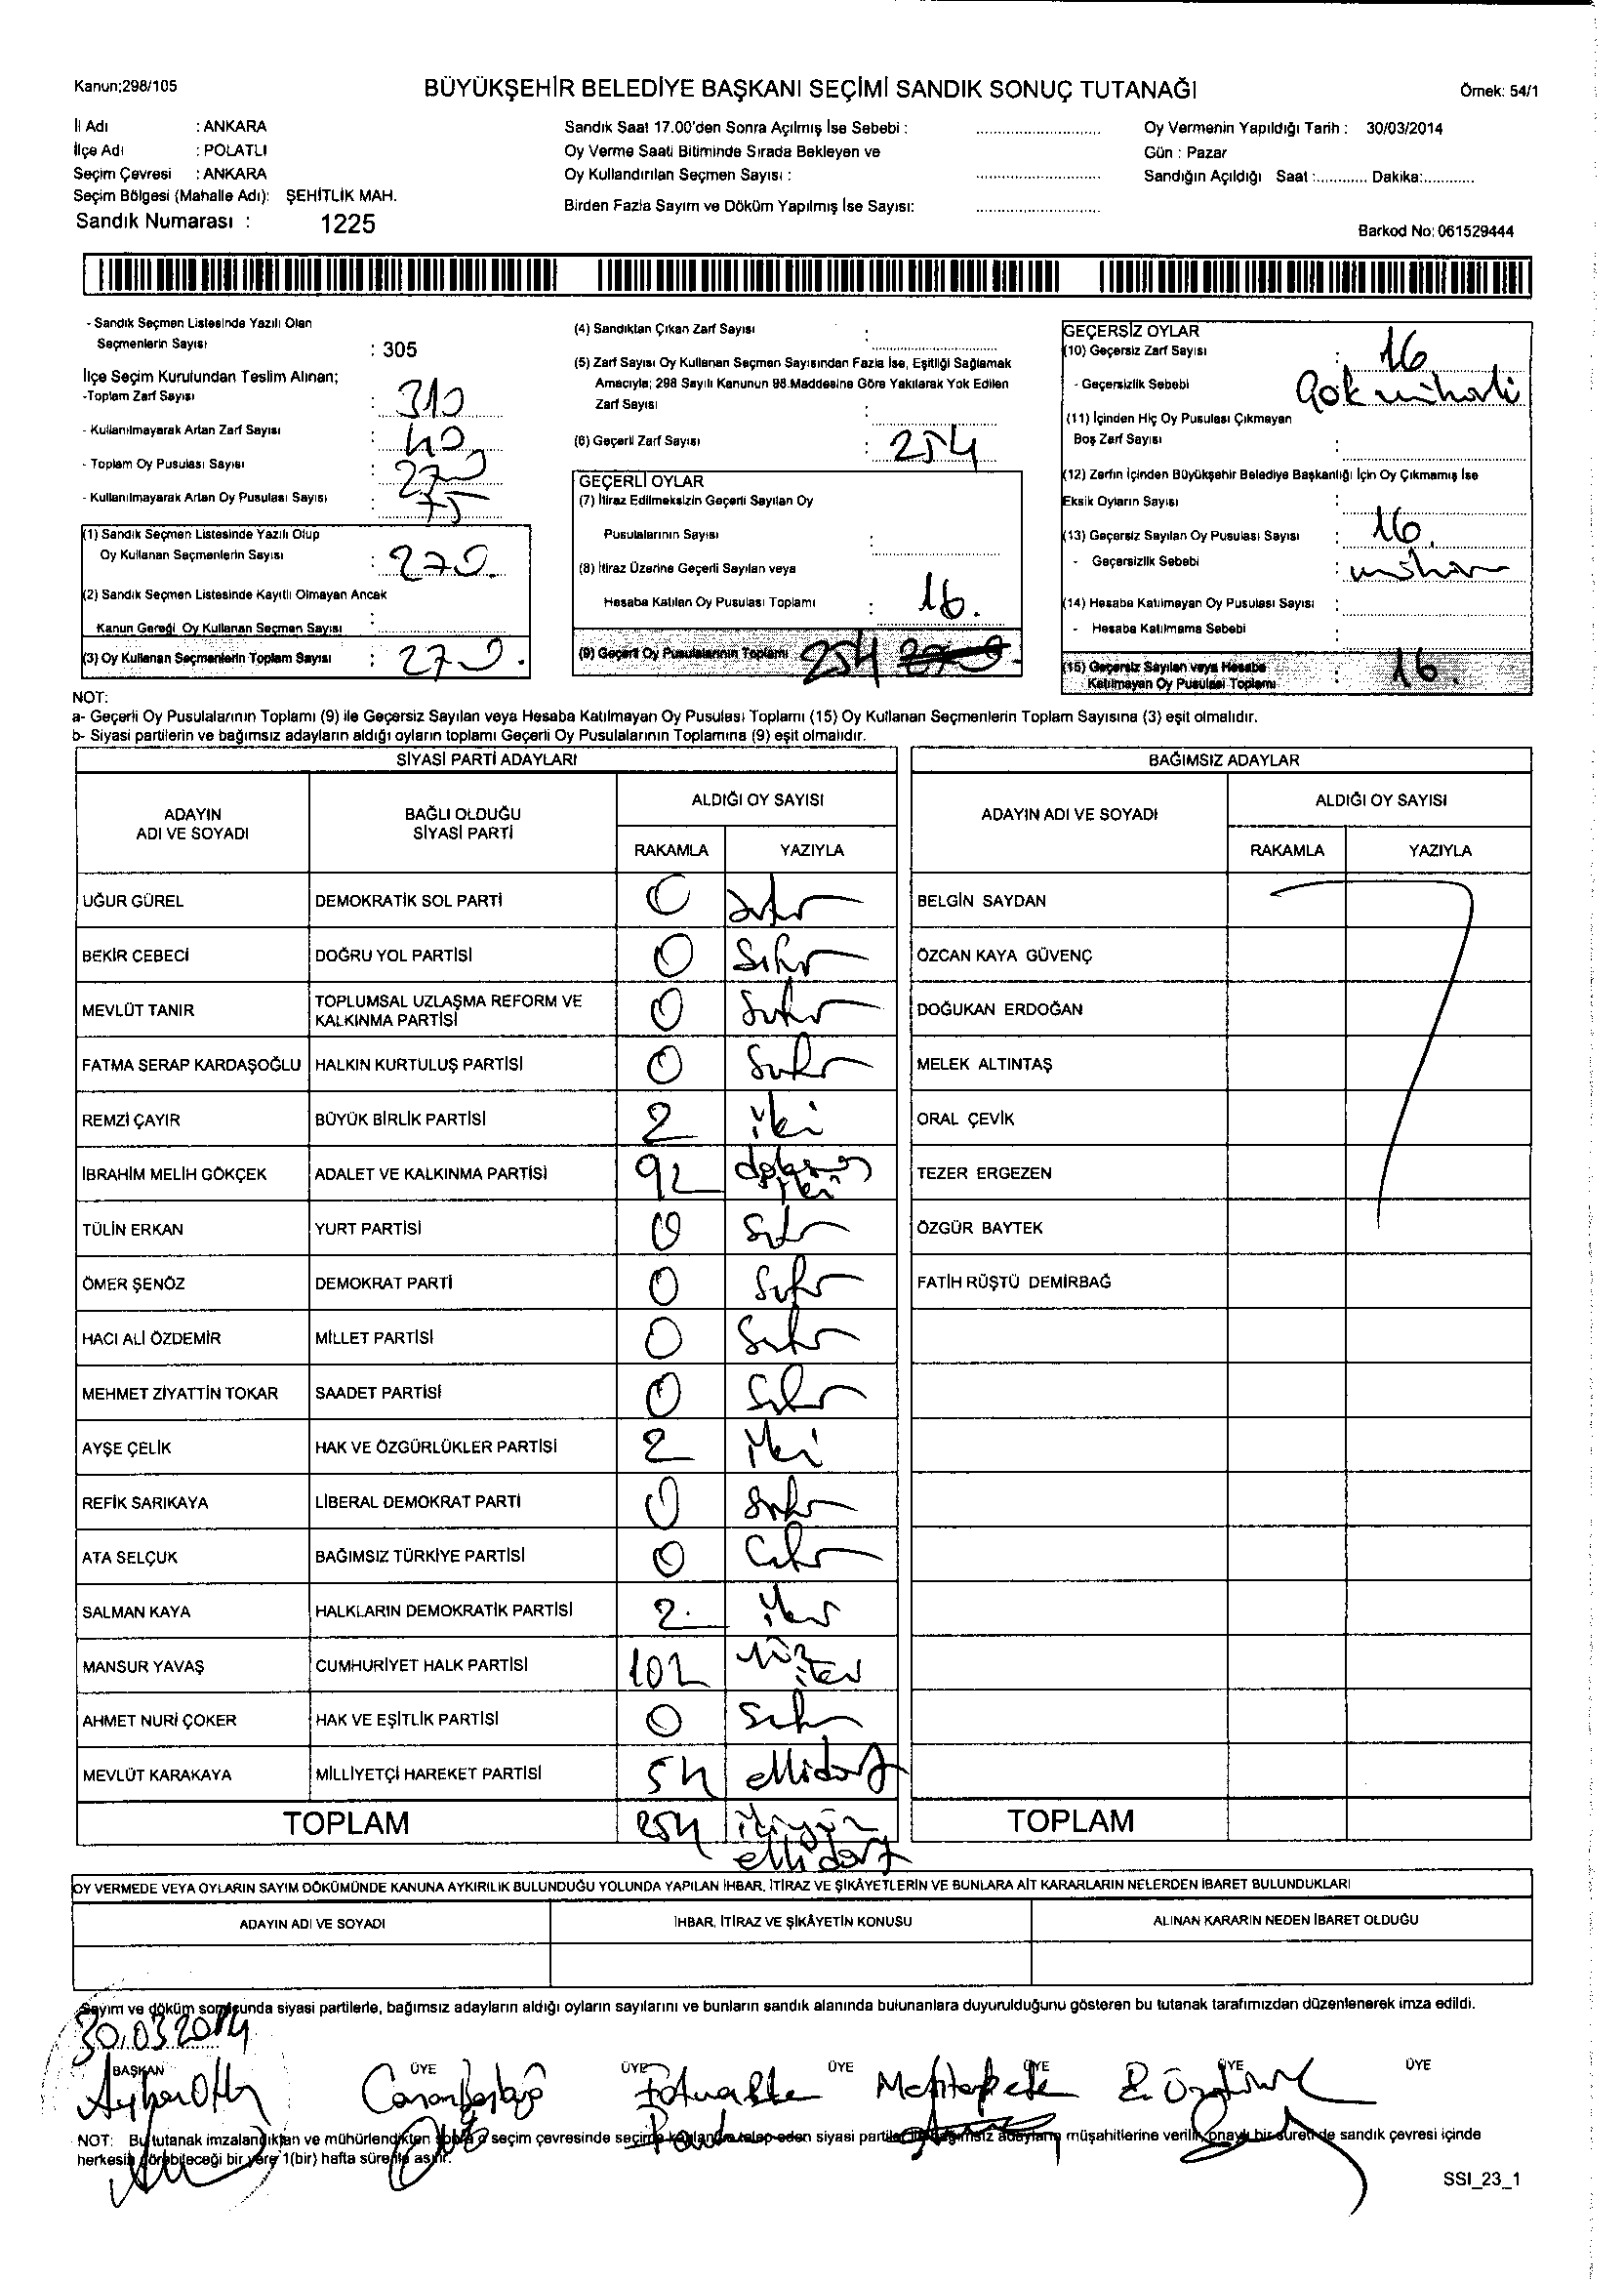 Kanun;298/105
BÜYÜKŞEHİR BELEDİYE BAŞKANI SEÇİMİ SANDIK SONUÇ TUTANAĞI
Örnek: 54/1
İl Adı : ANKARA
İlçe Adı : POLATLI
Seçim Çevresi : ANKARA
Seçim Bölgesi (Mahalle Adı): ŞEHİTLİK MAH.
Sandık Numarası : 1225
Sandık Saat 17.00'den Sonra Açılmış İse Sebebi :
Oy Verme Saati Bitiminde Sırada Bekleyen ve
Oy Kullandırılan Seçmen Sayısı :
Birden Fazla Sayım ve Döküm Yapılmış İse Sayısı:
Oy Vermenin Yapıldığı Tarih : 30/03/2014
Gün : Pazar
Sandığın Açıldığı Saat :............ Dakika:............
Barkod No: 061529444
- Sandık Seçmen Listesinde Yazılı Olan
Seçmenlerin Sayısı : 305
İlçe Seçim Kurulundan Teslim Alınan;
-Toplam Zarf Sayısı : 310
- Kullanılmayarak Artan Zarf Sayısı : 40
- Toplam Oy Pusulası Sayısı : 270
- Kullanılmayarak Artan Oy Pusulası Sayısı : 75
(1) Sandık Seçmen Listesinde Yazılı Olup
Oy Kullanan Seçmenlerin Sayısı : 270.
(2) Sandık Seçmen Listesinde Kayıtlı Olmayan Ancak
Kanun Gereği Oy Kullanan Seçmen Sayısı :
(3) Oy Kullanan Seçmenlerin Toplam Sayısı : 270.
(4) Sandıktan Çıkan Zarf Sayısı :
(5) Zarf Sayısı Oy Kullanan Seçmen Sayısından Fazla İse, Eşitliği Sağlamak
Amacıyla; 298 Sayılı Kanunun 98.Maddesine Göre Yakılarak Yok Edilen
Zarf Sayısı :
(6) Geçerli Zarf Sayısı : 254
GEÇERLİ OYLAR
(7) İtiraz Edilmeksizin Geçerli Sayılan Oy
Pusulalarının Sayısı :
(8) İtiraz Üzerine Geçerli Sayılan veya
Hesaba Katılan Oy Pusulası Toplamı : 16.
(9) Geçerli Oy Pusulalarının Toplamı 254 270.
GEÇERSİZ OYLAR
(10) Geçersiz Zarf Sayısı : 16
- Geçersizlik Sebebi : Çok mühürlü
(11) İçinden Hiç Oy Pusulası Çıkmayan
Boş Zarf Sayısı :
(12) Zarfın İçinden Büyükşehir Belediye Başkanlığı İçin Oy Çıkmamış İse
Eksik Oyların Sayısı :
(13) Geçersiz Sayılan Oy Pusulası Sayısı : 16.
- Geçersizlik Sebebi :
(14) Hesaba Katılmayan Oy Pusulası Sayısı :
- Hesaba Katılmama Sebebi :
(15) Geçersiz Sayılan veya Hesaba
Katılmayan Oy Pusulası Toplamı : 16.
NOT:
a- Geçerli Oy Pusulalarının Toplamı (9) ile Geçersiz Sayılan veya Hesaba Katılmayan Oy Pusulası Toplamı (15) Oy Kullanan Seçmenlerin Toplam Sayısına (3) eşit olmalıdır.
b- Siyasi partilerin ve bağımsız adayların aldığı oyların toplamı Geçerli Oy Pusulalarının Toplamına (9) eşit olmalıdır.
SİYASİ PARTİ ADAYLARI
ADAYIN ADI VE SOYADI
BAĞLI OLDUĞU SİYASİ PARTİ
ALDIĞI OY SAYISI
RAKAMLA YAZIYLA
UĞUR GÜREL DEMOKRATİK SOL PARTİ 0 sıfır
BEKİR CEBECİ DOĞRU YOL PARTİSİ 0 sıfır
MEVLÜT TANIR TOPLUMSAL UZLAŞMA REFORM VE KALKINMA PARTİSİ 0 sıfır
FATMA SERAP KARDAŞOĞLU HALKIN KURTULUŞ PARTİSİ 0 sıfır
REMZİ ÇAYIR BÜYÜK BİRLİK PARTİSİ 2 iki
İBRAHİM MELİH GÖKÇEK ADALET VE KALKINMA PARTİSİ 92 doksan iki
TÜLİN ERKAN YURT PARTİSİ 0 sıfır
ÖMER ŞENÖZ DEMOKRAT PARTİ 0 sıfır
HACI ALİ ÖZDEMİR MİLLET PARTİSİ 0 sıfır
MEHMET ZİYATTİN TOKAR SAADET PARTİSİ 0 sıfır
AYŞE ÇELİK HAK VE ÖZGÜRLÜKLER PARTİSİ 2 iki
REFİK SARIKAYA LİBERAL DEMOKRAT PARTİ 0 sıfır
ATA SELÇUK BAĞIMSIZ TÜRKİYE PARTİSİ 0 sıfır
SALMAN KAYA HALKLARIN DEMOKRATİK PARTİSİ 2. iki
MANSUR YAVAŞ CUMHURİYET HALK PARTİSİ 102 yüz iki
AHMET NURİ ÇOKER HAK VE EŞİTLİK PARTİSİ 0 sıfır
MEVLÜT KARAKAYA MİLLİYETÇİ HAREKET PARTİSİ 54 ellidört
TOPLAM 254 ikiyüz ellidört
BAĞIMSIZ ADAYLAR
ADAYIN ADI VE SOYADI
ALDIĞI OY SAYISI
RAKAMLA YAZIYLA
BELGİN SAYDAN
ÖZCAN KAYA GÜVENÇ
DOĞUKAN ERDOĞAN
MELEK ALTINTAŞ
ORAL ÇEVİK
TEZER ERGEZEN
ÖZGÜR BAYTEK
FATİH RÜŞTÜ DEMİRBAĞ
TOPLAM
OY VERMEDE VEYA OYLARIN SAYIM DÖKÜMÜNDE KANUNA AYKIRILIK BULUNDUĞU YOLUNDA YAPILAN İHBAR, İTİRAZ VE ŞİKÂYETLERİN VE BUNLARA AİT KARARLARIN NELERDEN İBARET BULUNDUKLARI
ADAYIN ADI VE SOYADI
İHBAR, İTİRAZ VE ŞİKÂYETİN KONUSU
ALINAN KARARIN NEDEN İBARET OLDUĞU
Sayım ve döküm sonucunda siyasi partilerle, bağımsız adayların aldığı oyların sayılarını ve bunların sandık alanında bulunanlara duyurulduğunu gösteren bu tutanak tarafımızdan düzenlenerek imza edildi.
30.03.2014
BAŞKAN ÜYE ÜYE ÜYE ÜYE ÜYE ÜYE
NOT: Bu tutanak imzalandıktan ve mühürlendikten sonra o seçim çevresinde seçime katılan ve talep eden siyasi partiler ile bağımsız adayların müşahitlerine verilir, onaylı bir sureti de sandık çevresi içinde
herkesin görebileceği bir yere 1(bir) hafta süreyle asılır.
SSI_23_1